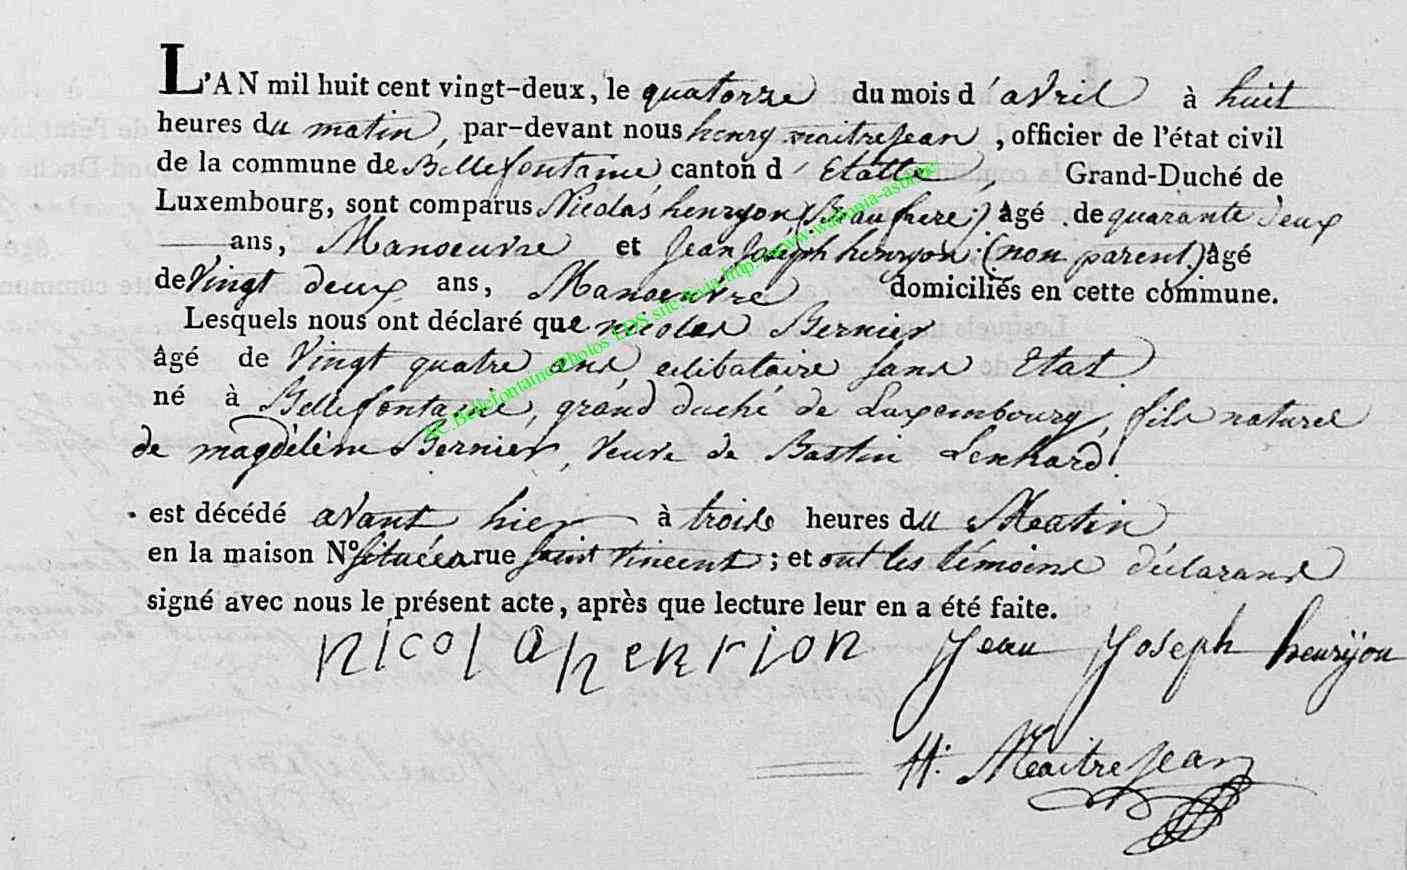 L'AN mil huit cent vingt-deux, le quatorze du mois d'avril à huit
heures du matin, par-devant nous henry maitrejean, officier de l'état civil
de la commune de Bellefontaine canton d'Etalle, Grand-Duché de
Luxembourg, sont comparus Nicolas henryon (Beau frere) âgé de quarante deux
ans, Manoeuvre et Jean Joseph henryon (non parent) âgé
de Vingt deux ans, Manoeuvre domiciliés en cette commune.
Lesquels nous ont déclaré que nicolas Bernier
âgé de Vingt quatre ans, celibataire sans Etat
né à Bellefontaine, grand duché de Luxembourg, fils naturel
de magdelène Bernier, veuve de Bastin Lenhard.
est décédé avant hier à trois heures du Matin
en la maison N° située rue saint Vincent ; et ont les témoins déclarans
signé avec nous le présent acte, après que lecture leur en a été faite.
nicola henrion Jean Joseph henryon
H. Maitrejean
EC Bellefontaine Photos LDS site http://www.wallonia-asbl.be